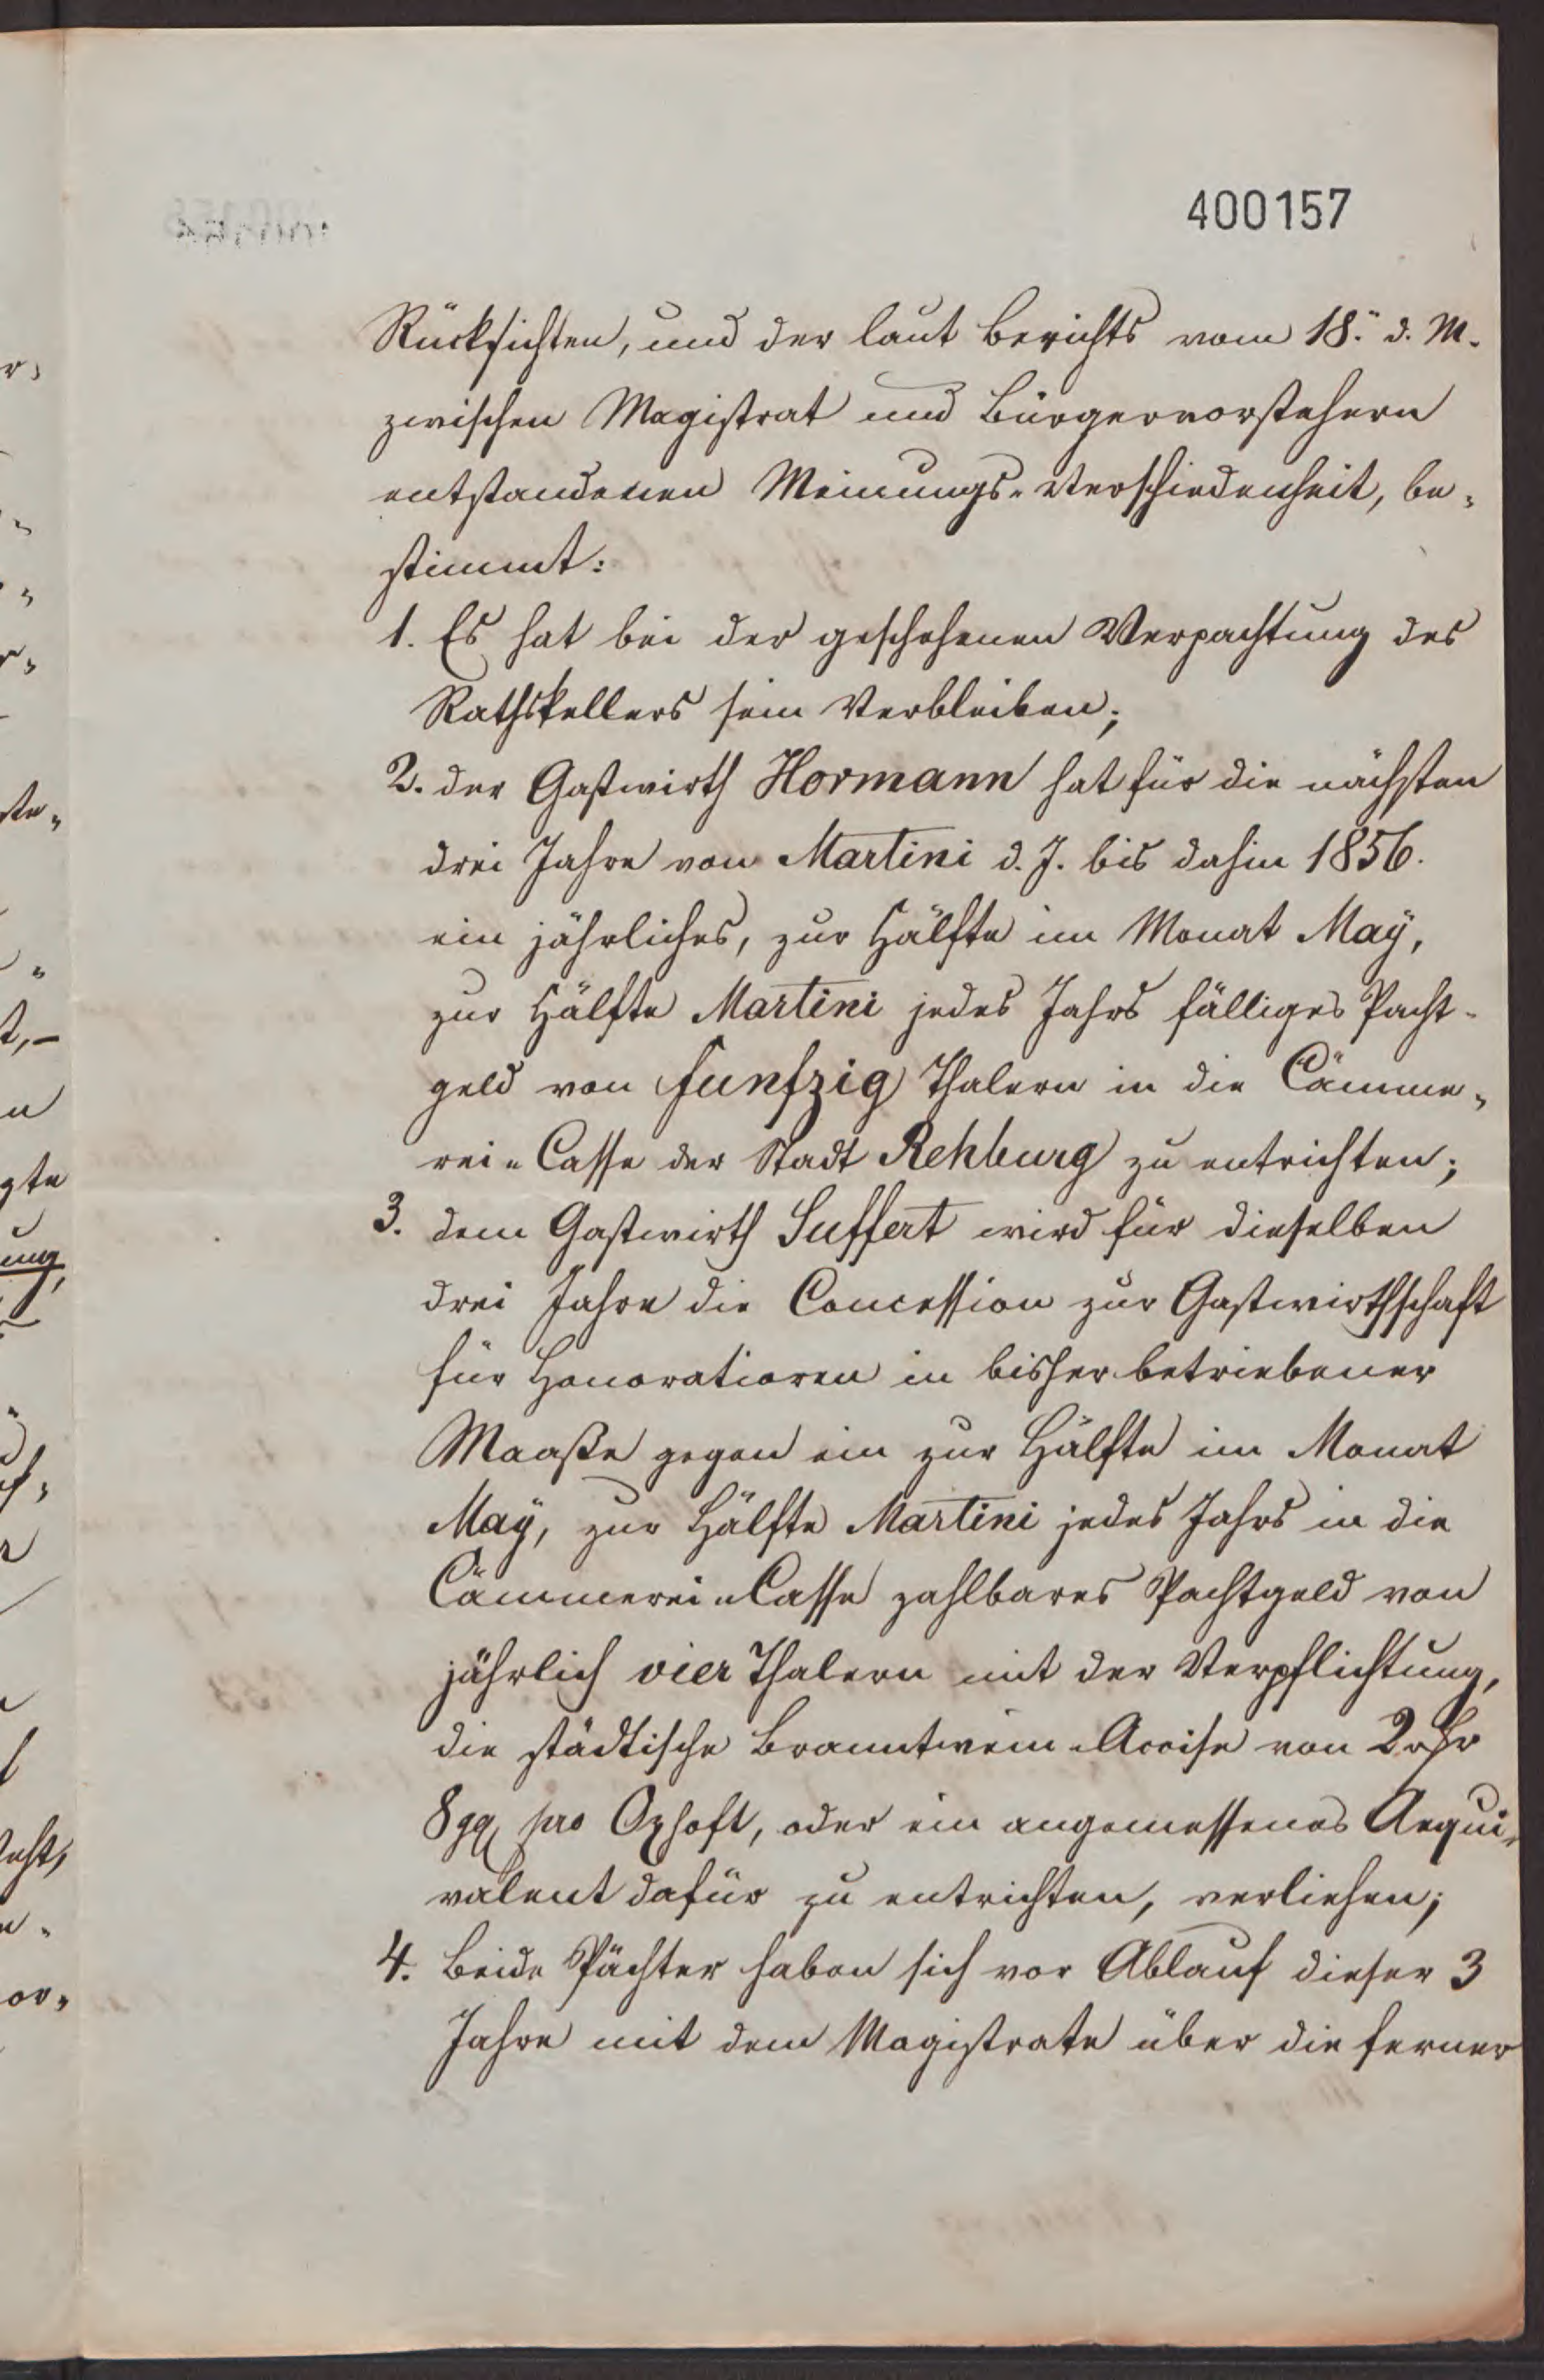 400157
Rücksichten, und der laut Berichts vom 18. d. M.
zwischen Magistrat und Bürgervorstehern
entstandenen Meinungs-Verschiedenheit, be-
stimmt:
1. Es hat bei der geschehenen Verpachtung des
Rathskellers sein Verbleiben;
2. der Gastwirth Hormann hat für die nächsten
drei Jahre von Martini d. J. bis dahin 1856.
ein jährliches, zur Hälfte im Monat May,
zur Hälfte Martini jedes Jahrs fälliges Pacht-
geld von funfzig Thalern in die Cämme-
rei-Casse der Stadt Rehburg zu entrichten;
3. dem Gastwirth Suffert wird für dieselben
drei Jahre die Concession zur Gastwirthschaft
für Honoratioren in bisher betriebener
Maaße gegen ein zur Hälfte im Monat
May, zur Hälfte Martini jedes Jahrs in die
Cämmerei-Casse zahlbares Pachtgeld von
jährlich vier Thalern mit der Verpflichtung,
die städtische Branntwein-Accise von 2 rthr
8 gg pro Oxhoft, oder ein angemessenes Aequi-
valent dafür zu entrichten, verliehen;
4. Beide Pächter haben sich vor Ablauf dieser 3
Jahre mit dem Magistrate über die ferner